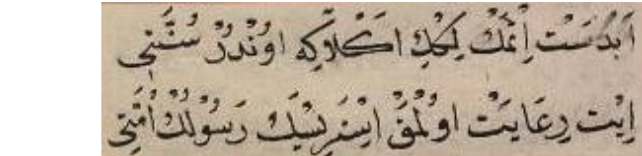 اَبْدَسْت اِتْمَكْ لِكِكْ اَكْلاَكِه اوُنْدُرْ سُنَّتِی
اِيْت رِعَايَتْ اوُلْمَقْ اِيسْتَرسِيكْ رَسُولُكْ اُمَّتِی